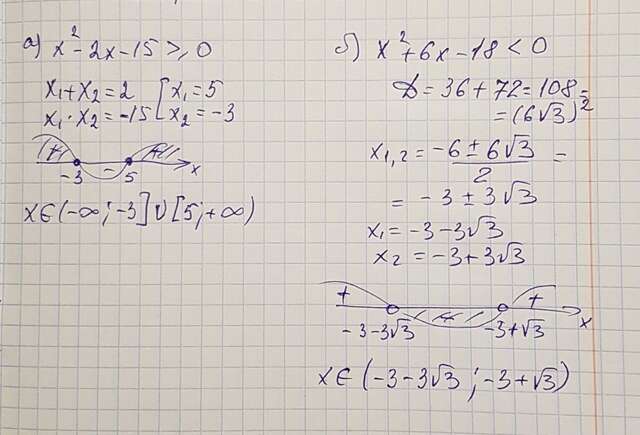 а) x² - 2x - 15 ≥ 0
x₁ + x₂ = 2
x₁ · x₂ = -15
[ x₁ = 5
x₂ = -3
+ - +
-3 5 x
x ∈ (-∞; -3] ∪ [5; +∞)
б) x² + 6x - 18 < 0
D = 36 + 72 = 108 =
= (6√3)²
x₁,₂ = (-6 ± 6√3)/2 =
= -3 ± 3√3
x₁ = -3 - 3√3
x₂ = -3 + 3√3
+ +
-3-3√3 -3+√3 x
x ∈ (-3-3√3 ; -3+√3)